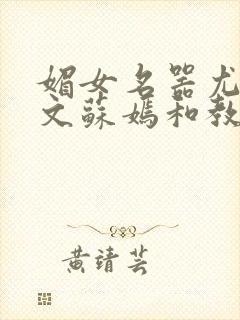 媚女名器尤
文蘇媽和教
黄靖芸